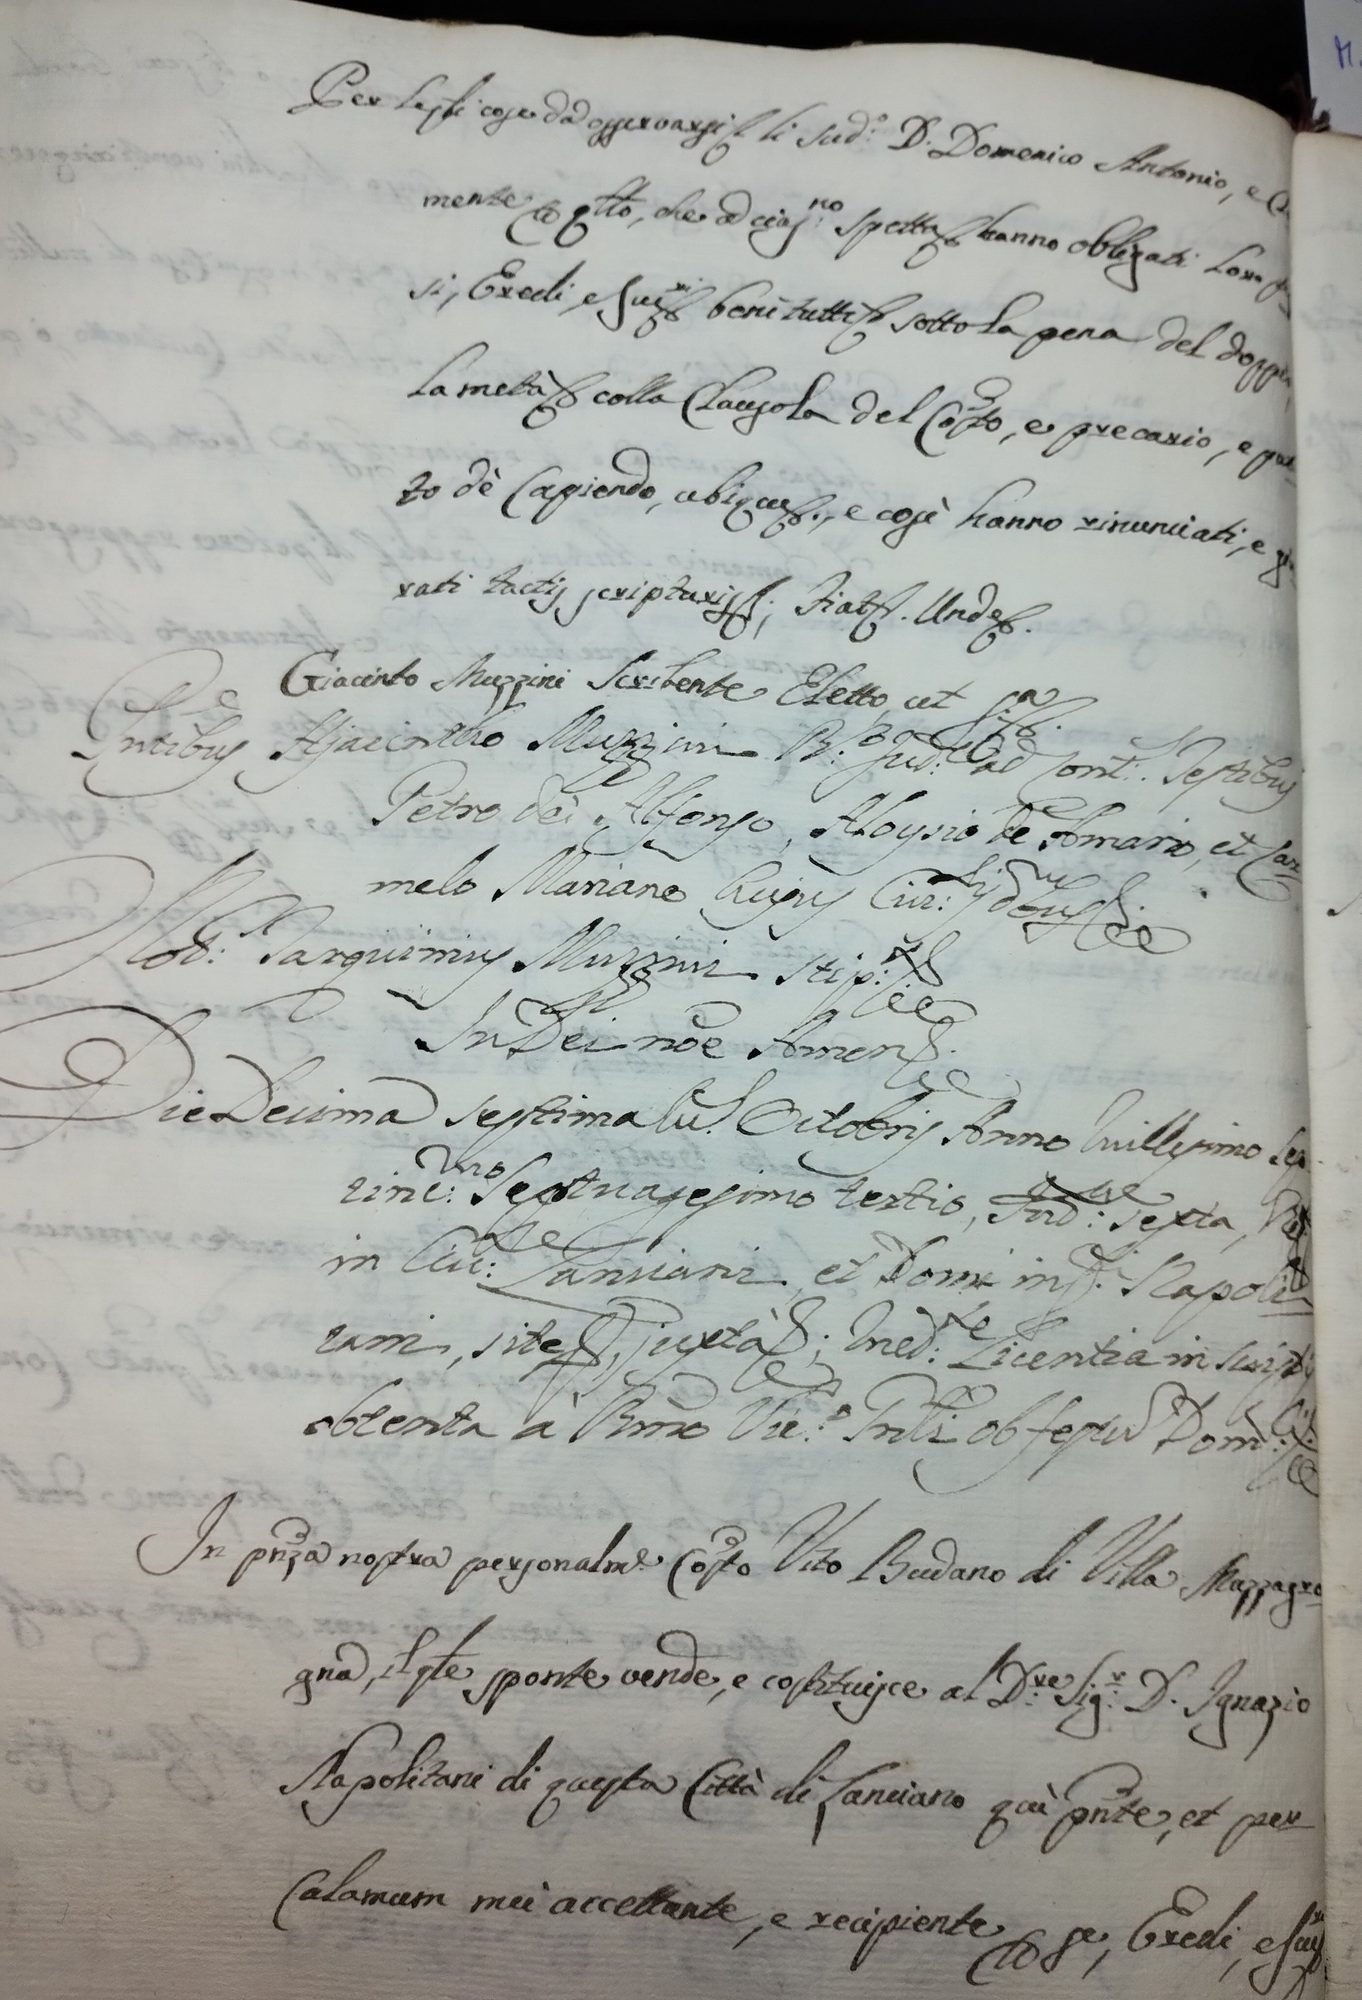 Per le sud.e cose da osservarsi li sud.i D. Domenico Antonio, e
mente p qtto, che ad ciasc.no spetta hanno obbligati loro
si, Eredi, e succ.ri beni tutti sotto la pena del doppio,
la metà colla Clausola del Costo, e precario, e pat-
to dè Capiendo, ubique, e così hanno rinunciati, e giu-
rati tactis scripturis; Fiat. Unde.
Giacinto Muzzini Scribente Eletto, ut
Pntibus Hjacintho Muzzini R.o Jud.e ad Cont: Testibus
Petro de Alfonso, Aloysio de Amario, et Car-
melo Mariano Cujus Civ:
Not: Tarquinius Muzzini stip:
In Dei nõe Amen.
Die Decima septima Octobris Anno Millesimo Sep-
tinc:mo Septuagesimo tertio, Ind:ne sexta,
in Civ:te Lanciani, et Domi Napoli-
tani, site, juxtà; Med:te Licentia in scriptis
obtenta à Rmo Vic.o Gnli ob festũ Dom:
In pñza nostra personalm.e Costo Vito Budano di Villa Mozzagro-
gna, il qle sponte vende, e costituisce al D.re Sig.r D. Ignazio
Napolitani di questa Città di Lanciano quì pnte, et per
Calamum mei accettante, e recipiente p se, Eredi, e succ.ri